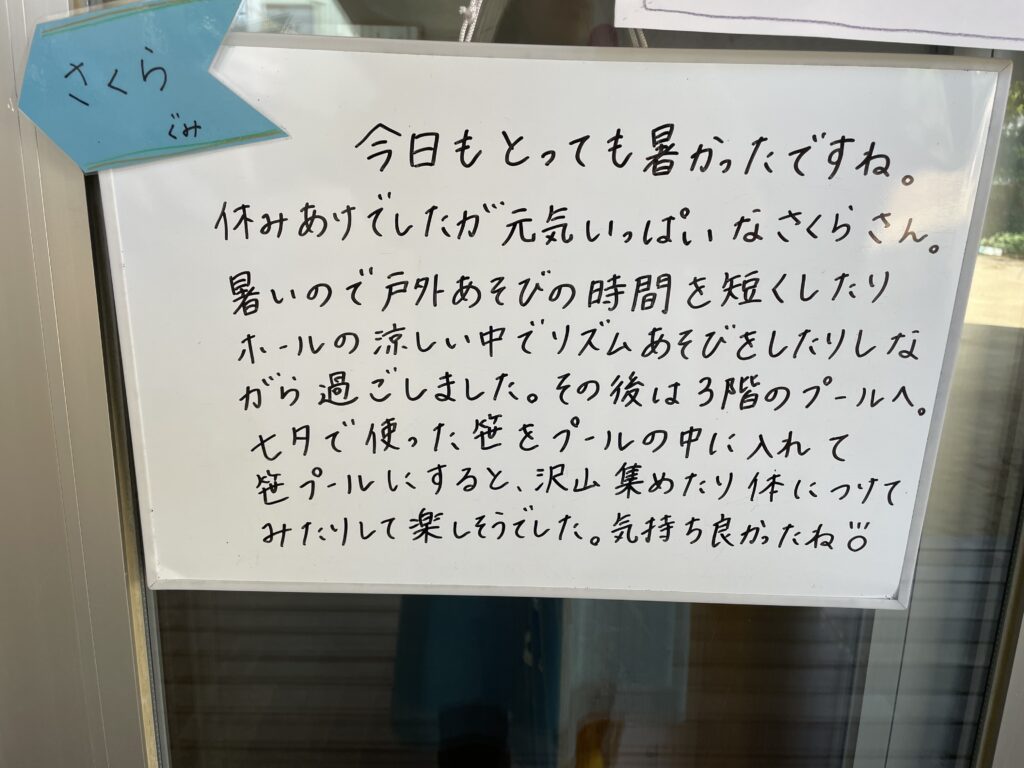 さくら
ぐみ
今日もとっても暑かったですね。
休みあけでしたが元気いっぱいなさくらさん。
暑いので戸外あそびの時間を短くしたり
ホールの涼しい中でリズムあそびをしたりしな
がら過ごしました。その後は3階のプールへ。
七夕で使った笹をプールの中に入れて
笹プールにすると、沢山集めたり体につけて
みたりして楽しそうでした。気持ち良かったね